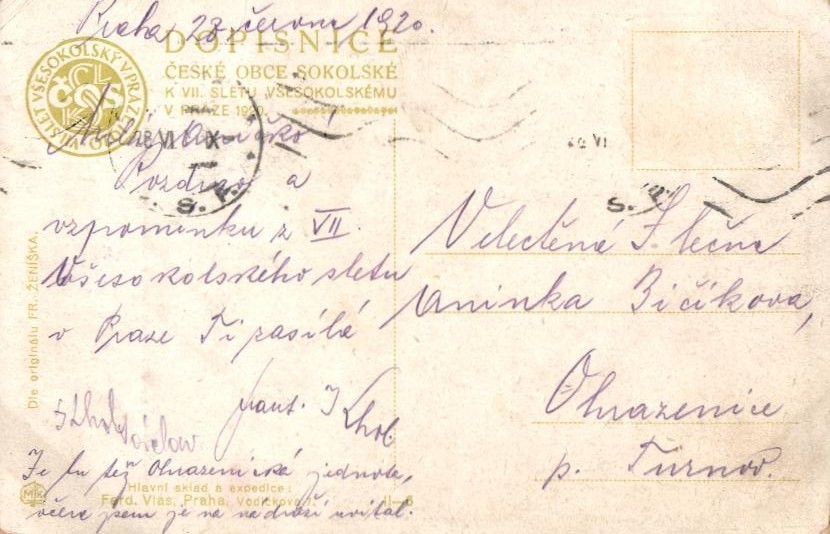 Praha 28. června 1920.
DOPISNICE
ČESKÉ OBCE SOKOLSKÉ
K VII. SLETU VŠESOKOLSKÉMU
V PRAZE 1920
VII. SLET VŠESOKOLSKÝ V PRAZE 1920
ČOS
28 VI
Milá Aničko!
Pozdrav a
vzpomínku z VII.
Všesokolského sletu
v Praze Ti zasílá
Frant. J. Khol
Je tu též Ohrazenická jednota,
včera jsem je na nádraží uvítal.
Velectěná Slečna
Aninka Bičíkova,
Ohrazenice
p. Turnov.
Dle originálu FR. ŽENÍŠKA.
Hlavní sklad a expedice:
Ferd. Vlas, Praha, Vodičkova
II—6